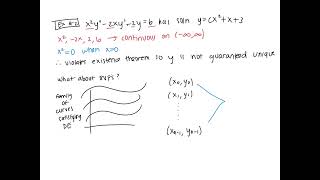 Ex #2 x²y" - 2xy' - 2y = 6 has soln y = cx² + x + 3
x², -2x, 2, 6 → continuous on (-∞,∞)
x² = 0 when x = 0
∴ violates existence theorem so y is not guaranteed unique
what about BVPs?
family
of
curves
satisfying
DE
(x₀, y₀)
(x₁, y₁)
(xₙ₋₁, yₙ₋₁)